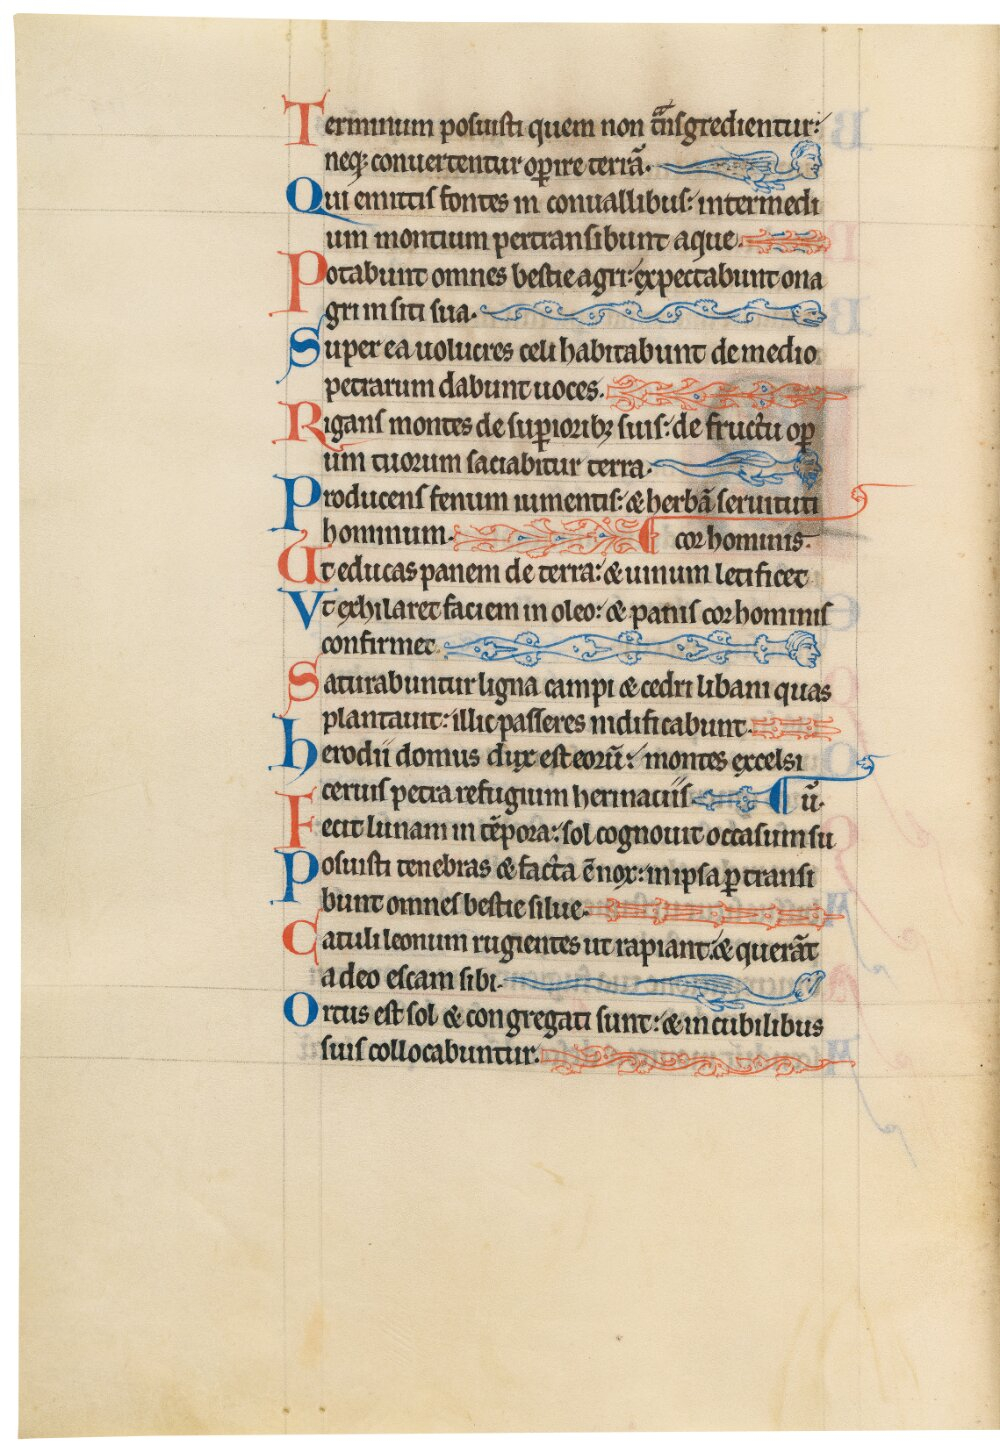 Terminum posuisti quem non t̃nsgredientur:
neq; conuertentur op̲ire terrã.
Qui emittis fontes in conuallibus: intermedi
um montium pertransibunt aque.
Potabunt omnes bestie agri: expectabunt ona
gri in siti sua.
Super ea uolucres celi habitabunt de medio
petrarum dabunt uoces.
Rigans montes de sup̲iorib; suis: de fructu op̲
um tuorum saciabitur terra.
Producens fenum iumentis: & herbã seruituti
hominum. cor hominis.
Ut educas panem de terra: & uinum letificet
Vt exhilaret faciem in oleo: & panis cor hominis
confirmet.
Saturabuntur ligna campi & cedri libani quas
plantauit: illic passeres nidificabunt.
herodii domus dux est eorũ: montes excelsi
ceruis petra refugium herinaciis. ũ.
Fecit lunam in tẽpora: sol cognouit occasum su
Posuisti tenebras & facta ẽ nox: in ipsa p̲transi
bunt omnes bestie silue.
Catuli leonum rugientes ut rapiant: & querãt
a deo escam sibi.
Ortus est sol & congregati sunt: & in cubilibus
suis collocabuntur.